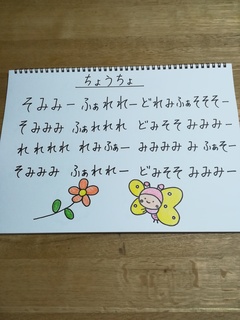 ちょうちょ
そみみー ふぁれれー どれみふぁそそそー
そみみみ ふぁれれれ どみそそみみみー
れれれれ れみふぁー みみみみ み ふぁそー
そみみみ ふぁれれー どみそそ みみみー